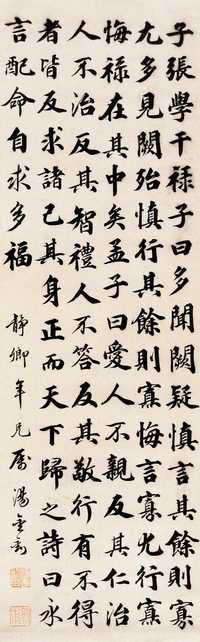 子張學干祿子曰多聞闕疑慎言其餘則寡
尤多見闕殆慎行其餘則寡悔言寡尤行寡
悔祿在其中矣孟子曰愛人不親反其仁治
人不治反其智禮人不答反其敬行有不得
者皆反求諸己其身正而天下歸之詩曰永
言配命自求多福
靜卿年兄屬 湯雲